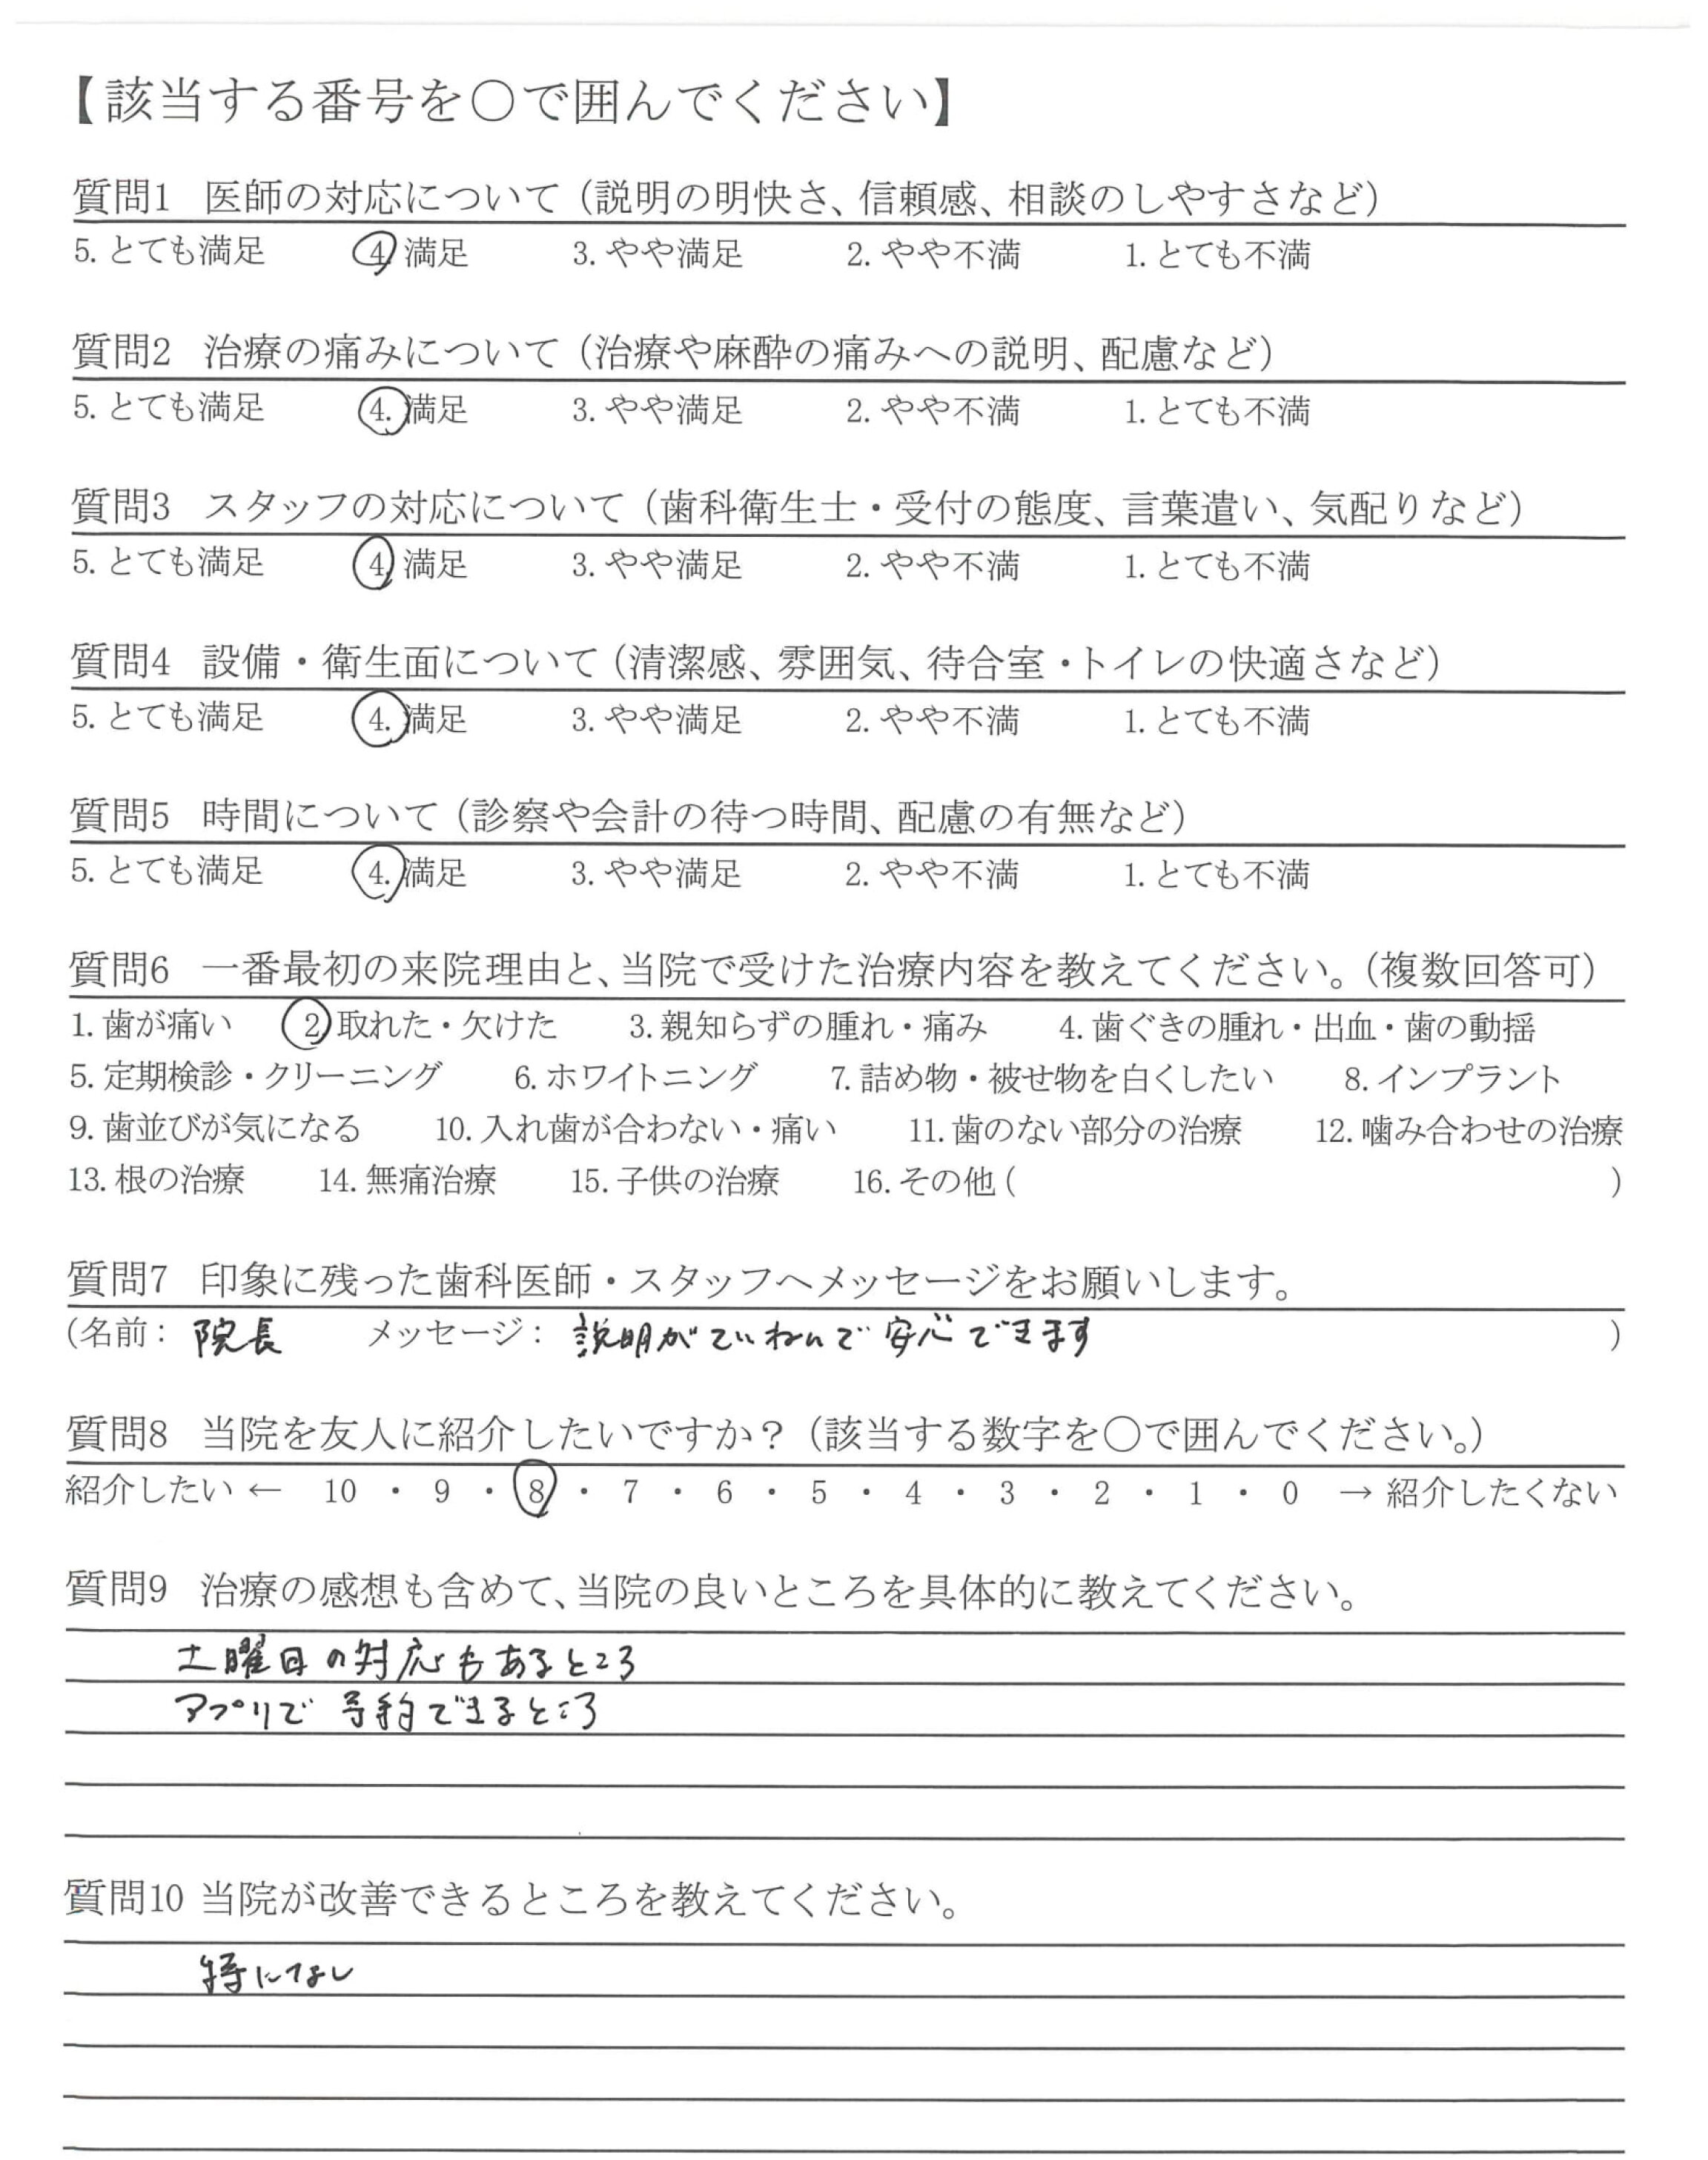 【該当する番号を〇で囲んでください】
質問1 医師の対応について（説明の明快さ、信頼感、相談のしやすさなど）
5. とても満足 4. 満足 3. やや満足 2. やや不満 1. とても不満
質問2 治療の痛みについて（治療や麻酔の痛みへの説明、配慮など）
5. とても満足 4. 満足 3. やや満足 2. やや不満 1. とても不満
質問3 スタッフの対応について（歯科衛生士・受付の態度、言葉遣い、気配りなど）
5. とても満足 4. 満足 3. やや満足 2. やや不満 1. とても不満
質問4 設備・衛生面について（清潔感、雰囲気、待合室・トイレの快適さなど）
5. とても満足 4. 満足 3. やや満足 2. やや不満 1. とても不満
質問5 時間について（診察や会計の待つ時間、配慮の有無など）
5. とても満足 4. 満足 3. やや満足 2. やや不満 1. とても不満
質問6 一番最初の来院理由と、当院で受けた治療内容を教えてください。（複数回答可）
1. 歯が痛い 2. 取れた・欠けた 3. 親知らずの腫れ・痛み 4. 歯ぐきの腫れ・出血・歯の動揺
5. 定期検診・クリーニング 6. ホワイトニング 7. 詰め物・被せ物を白くしたい 8. インプラント
9. 歯並びが気になる 10. 入れ歯が合わない・痛い 11. 歯のない部分の治療 12. 噛み合わせの治療
13. 根の治療 14. 無痛治療 15. 子供の治療 16. その他（ ）
質問7 印象に残った歯科医師・スタッフへメッセージをお願いします。
（名前： 院長 メッセージ： 説明がていねいで 安心できます ）
質問8 当院を友人に紹介したいですか？（該当する数字を〇で囲んでください。）
紹介したい ← 10 ・ 9 ・ 8 ・ 7 ・ 6 ・ 5 ・ 4 ・ 3 ・ 2 ・ 1 ・ 0 → 紹介したくない
質問9 治療の感想も含めて、当院の良いところを具体的に教えてください。
土曜日の対応もあるところ
アプリで 予約できるところ
質問10 当院が改善できるところを教えてください。
特になし